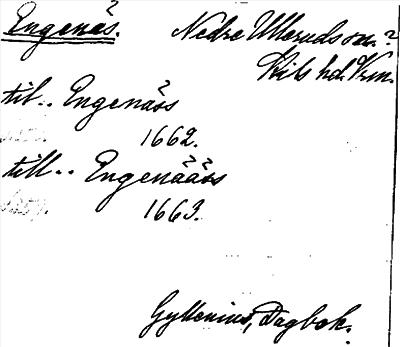 Engenäs. Nedre Ulleruds sn.?
Kils hd. Vrm.
til.. Engenäss
1662.
till.. Engenääss
1663.
Gyllenius, Dagbok.